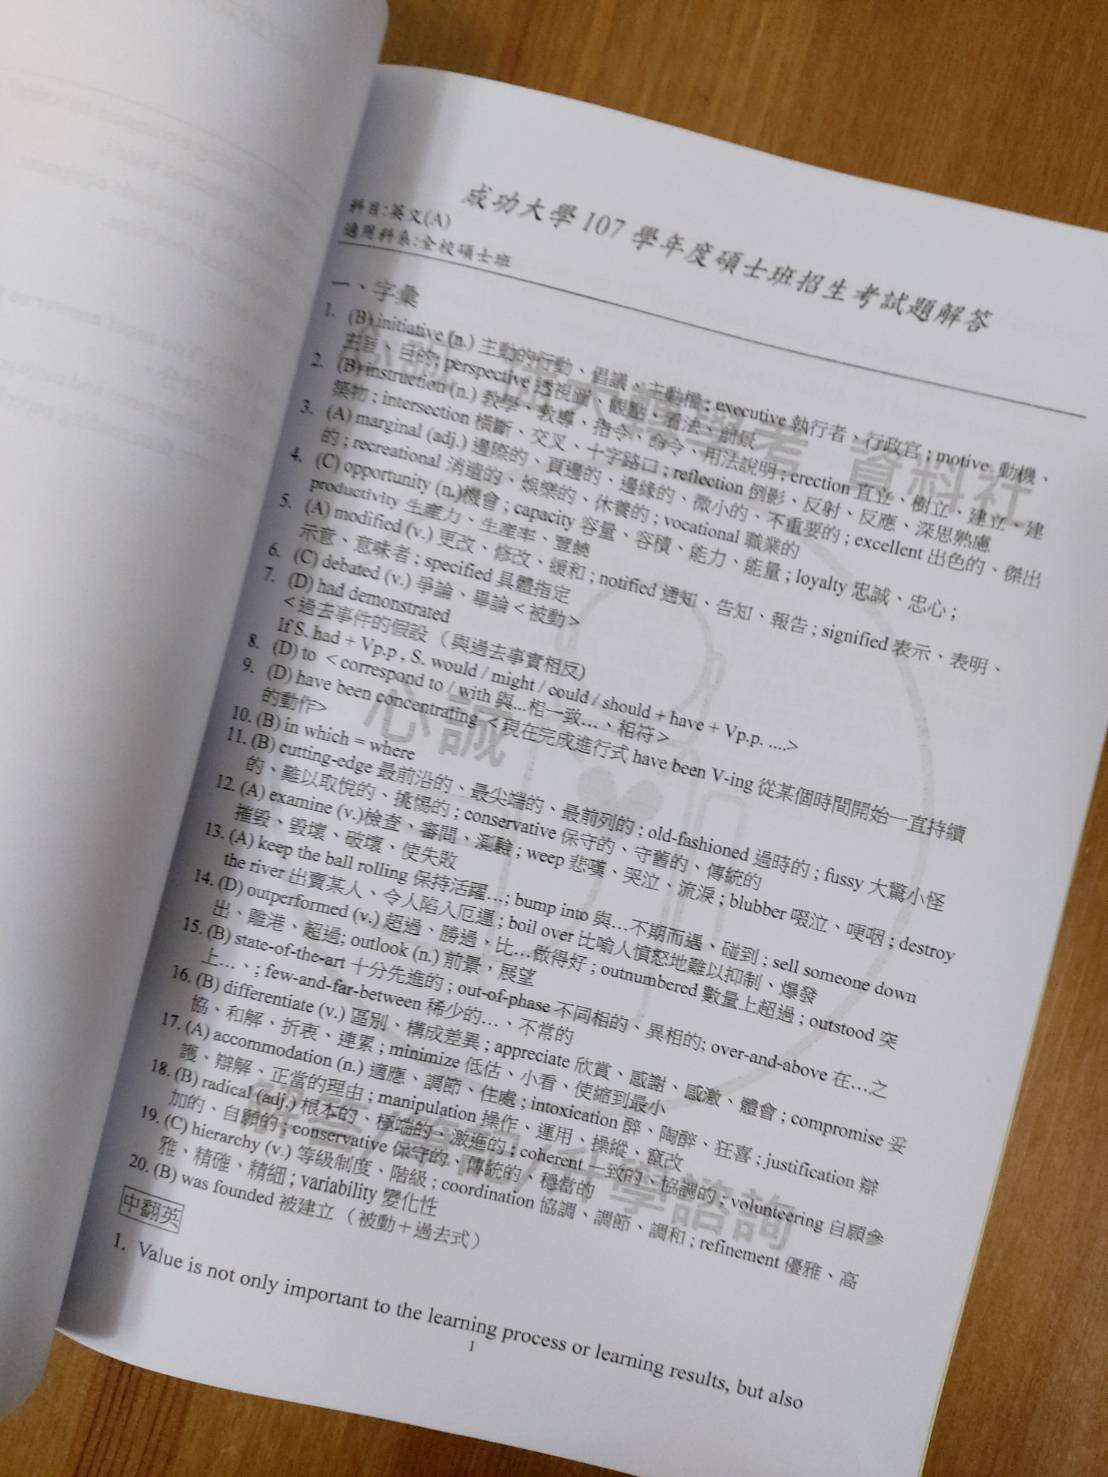 成功大學 107 學年度碩士班招生考試題解答
科目:英文(A)
適用科系:全校碩士班
一、字彙
1. (B) initiative (n.) 主動的行動、倡議、主動權 ; executive 執行者、行政官 ; motive 動機、
主旨、目的; perspective 透視圖、觀點、看法、前景
2. (B) instruction (n.) 教學、教導、指令、命令、用法說明 ; erection 直立、樹立、建立、建
築物 ; intersection 橫斷、交叉、十字路口 ; reflection 倒影、反射、反應、深思熟慮
3. (A) marginal (adj.) 邊際的、頁邊的、邊緣的、微小的、不重要的 ; excellent 出色的、傑出
的 ; recreational 消遣的、娛樂的、休養的 ; vocational 職業的
4. (C) opportunity (n.)機會 ; capacity 容量、容積、能力、能量 ; loyalty 忠誠、忠心 ;
productivity 生產力、生產率、豐饒
5. (A) modified (v.) 更改、修改、緩和 ; notified 通知、告知、報告 ; signified 表示、表明、
示意、意味者 ; specified 具體指定
6. (C) debated (v.) 爭論、畢論＜被動＞
7. (D) had demonstrated
＜過去事件的假設（與過去事實相反)
If S. had + Vp.p , S. would / might / could / should + have + Vp.p. ....＞
8. (D) to ＜correspond to / with 與...相一致…、相符＞
9. (D) have been concentrating ＜現在完成進行式 have been V-ing 從某個時間開始一直持續
的動作＞
10. (B) in which = where
11. (B) cutting-edge 最前沿的、最尖端的、最前列的 ; old-fashioned 過時的 ; fussy 大驚小怪
的、難以取悅的、挑惕的 ; conservative 保守的、守舊的、傳統的
12. (A) examine (v.)檢查、審問、測驗 ; weep 悲嘆、哭泣、流淚 ; blubber 啜泣、哽咽 ; destroy
摧毀、毀壞、破壞、使失敗
13. (A) keep the ball rolling 保持活躍…; bump into 與…不期而遇、碰到 ; sell someone down
the river 出賣某人、令人陷入厄運 ; boil over 比喻人憤怒地難以抑制、爆發
14. (D) outperformed (v.) 超過、勝過、比…做得好 ; outnumbered 數量上超過 ; outstood 突
出、離港、超過; outlook (n.) 前景，展望
15. (B) state-of-the-art 十分先進的 ; out-of-phase 不同相的、異相的; over-and-above 在…之
上…、; few-and-far-between 稀少的…、不常的
16. (B) differentiate (v.) 區別、構成差異 ; appreciate 欣賞、感謝、感激、體會 ; compromise 妥
協、和解、折衷、連累 ; minimize 低估、小看、使縮到最小
17. (A) accommodation (n.) 適應、調節、住處 ; intoxication 醉、陶醉、狂喜 ; justification 辯
護、辯解、正當的理由 ; manipulation 操作、運用、操縱、竄改
18. (B) radical (adj.) 根本的、極端的、激進的 ; coherent 一致的、協調的 ; volunteering 自願參
加的、自願的 ; conservative 保守的、傳統的、穩當的
19. (C) hierarchy (v.) 等級制度、階級 ; coordination 協調、調節、調和 ; refinement 優雅、高
雅、精確、精細 ; variability 變化性
20. (B) was founded 被建立 （被動＋過去式）
中翻英
1. Value is not only important to the learning process or learning results, but also
1
心誠
解答/筆記/升學諮詢